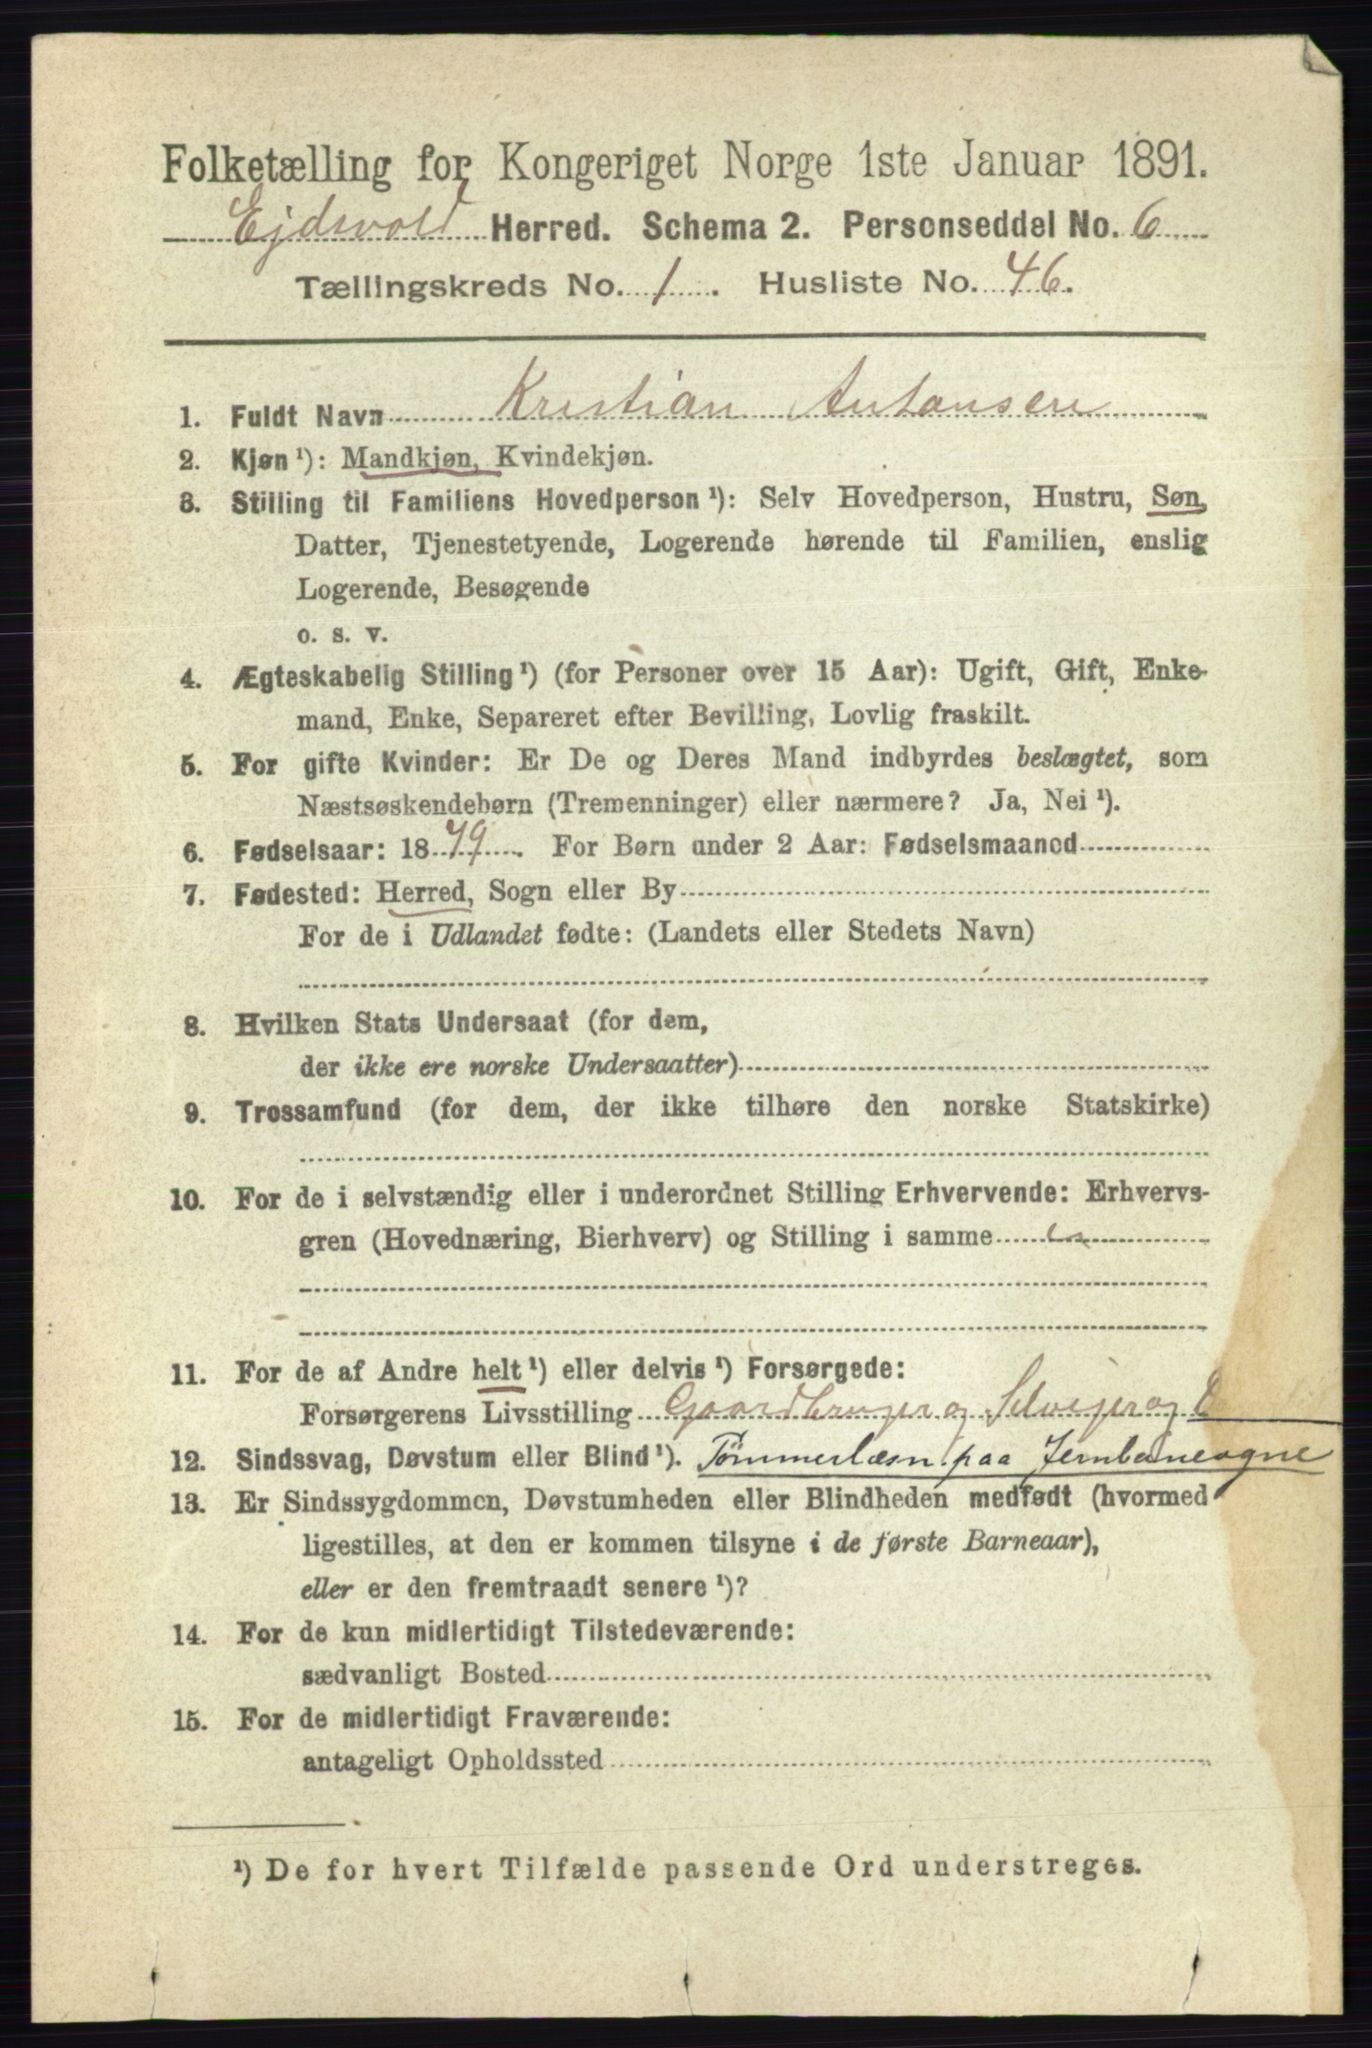 Folketælling for Kongeriget Norge 1ste Januar 1891.
Ejdsvold Herred. Schema 2. Personseddel No. 6
Tællingskreds No. 1. Husliste No. 46.
1. Fuldt Navn Kristian Antonsen
2. Kjøn ¹): Mandkjøn, Kvindekjøn.
3. Stilling til Familiens Hovedperson ¹): Selv Hovedperson, Hustru, Søn,
Datter, Tjenestetyende, Logerende hørende til Familien, enslig
Logerende, Besøgende
o. s. v.
4. Ægteskabelig Stilling ¹) (for Personer over 15 Aar): Ugift, Gift, Enke-
mand, Enke, Separeret efter Bevilling, Lovlig fraskilt.
5. For gifte Kvinder: Er De og Deres Mand indbyrdes beslægtet, som
Næstsøskendebørn (Tremenninger) eller nærmere? Ja, Nei ¹).
6. Fødselsaar: 1879. For Børn under 2 Aar: Fødselsmaaned
7. Fødested: Herred, Sogn eller By
For de i Udlandet fødte: (Landets eller Stedets Navn)
8. Hvilken Stats Undersaat (for dem,
der ikke ere norske Undersaatter)
9. Trossamfund (for dem, der ikke tilhøre den norske Statskirke)
10. For de i selvstændig eller i underordnet Stilling Erhvervende: Erhvervs-
gren (Hovednæring, Bierhverv) og Stilling i samme
11. For de af Andre helt ¹) eller delvis ¹) Forsørgede:
Forsørgerens Livsstilling Gaardbruger og Selvejer og
12. Sindssvag, Døvstum eller Blind ¹). Tömmerlæsn. paa Jernbanevogne
13. Er Sindssygdommen, Døvstumheden eller Blindheden medfødt (hvormed
ligestilles, at den er kommen tilsyne i de første Barneaar),
eller er den fremtraadt senere ¹)?
14. For de kun midlertidigt Tilstedeværende:
sædvanligt Bosted
15. For de midlertidigt Fraværende:
antageligt Opholdssted
¹) De for hvert Tilfælde passende Ord understreges.